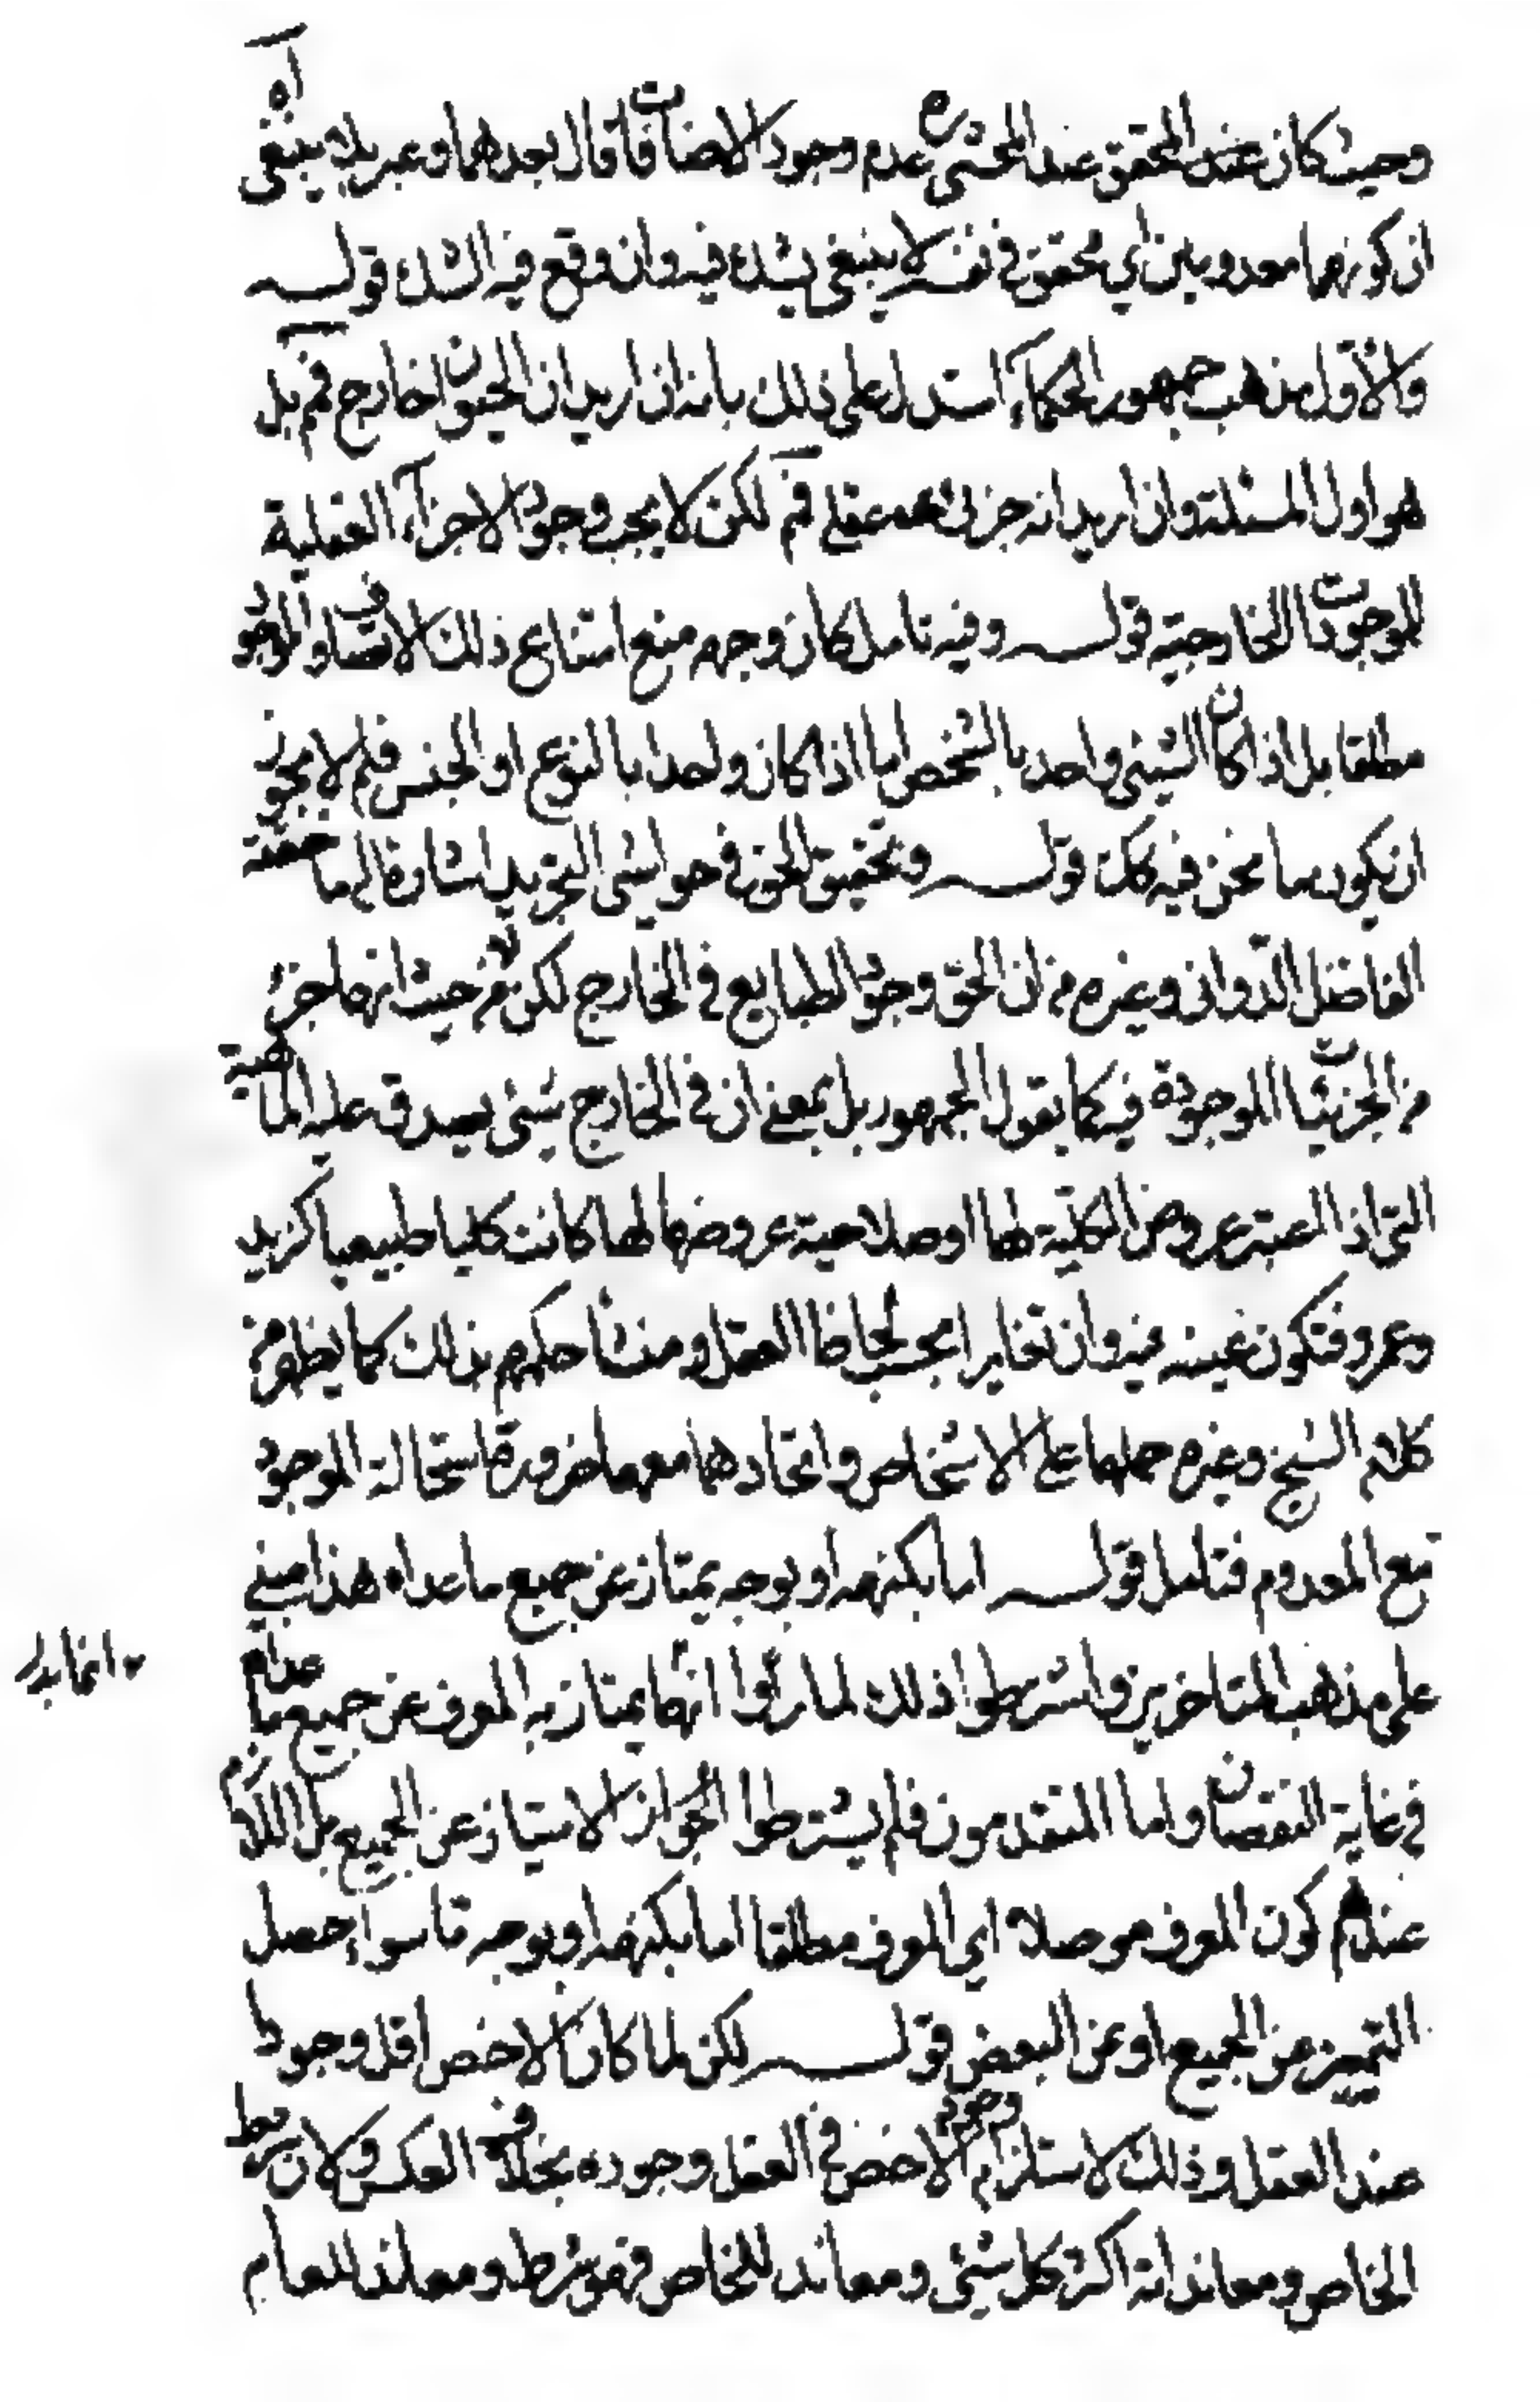 وحيث كان عند المحقق عند المحشى ره عدم وجود الاضافات قال بعدهما وعبر بلا ينبغى اه
ان كونهما معدومين اي محقق في نفسه لا ينبغى يشك فيه وان وقع فيه الشك قولـــه
والاول مذهب جمهور الحكماء استدل على ذلك بانه ان اريد ان الحيوان الخارج فم بل
هو اول المسئلة وان اريد انه جزئ عقلى فم لكن لا يجب وجود الاجزآء العقلية
للموجودات الخارجية قولـــه وفيه تامل كان وجهه منع امتناع ذلك الاتصاف والموجود
مطلقا بل اذا كان الشيئ واحد بالشخص اما اذا كان واحدا بالنوع او الجنس فلم لا يجوز
ان يكون ما نحن فيه كك قولـــه وتحقيق الحق في حواشى التجريد اشارة الى ما حققه
الفاضل الدوانى وغيره من ان الحق وجود الطبايع في الخارج لكن من حيث انها جزء
من الجزئيات الموجودة فيه كما يقول الجمهور بل بمعنى ان في الخارج شيئ يصدق عليه الماهية
التى اذا اعتبر عروض الكلية لها او صلاحية عروضها لها كانت كليا طبيعيا كزيد
وعمرو فتكون عينه فيه وان تغايرا بحسب لحاظ العقل ومنشأ حكمهم بذلك كما يظهر من
كلام الشيخ وغيره حملها على الاشخاص واتحادها معها ضرورة استحالة الموجود
مع المعدوم فتامل قولـــه اما بكنهه او بوجه يمتاز عن جميع ما عداه هذا مبنى
على مذهب المتاخرين واشترطوا ذلك لما رأوا ان ما يمتاز به المعرف عن جميع ما عداه
في غاية النقصان واما المتقدمون فلم يشترطوا الجواز الامتياز عن الجميع بل اللازم
عندهم كون المعرف موصلا اي المعرف مطلقا اما بكنهه او بوجه ما سواء حصل
التمييز عن الجميع او عن البعض قولـــه لكن لما كان الاخص اقل وجودا
عند العقل وذلك لاستلزام وجود الاخص في العقل وجوده بخلاف العكس ولان شرايط
الخاص ومعانداته اكثر كل شيئ ومعاند للخاص فهو شرط ومعاند للعام